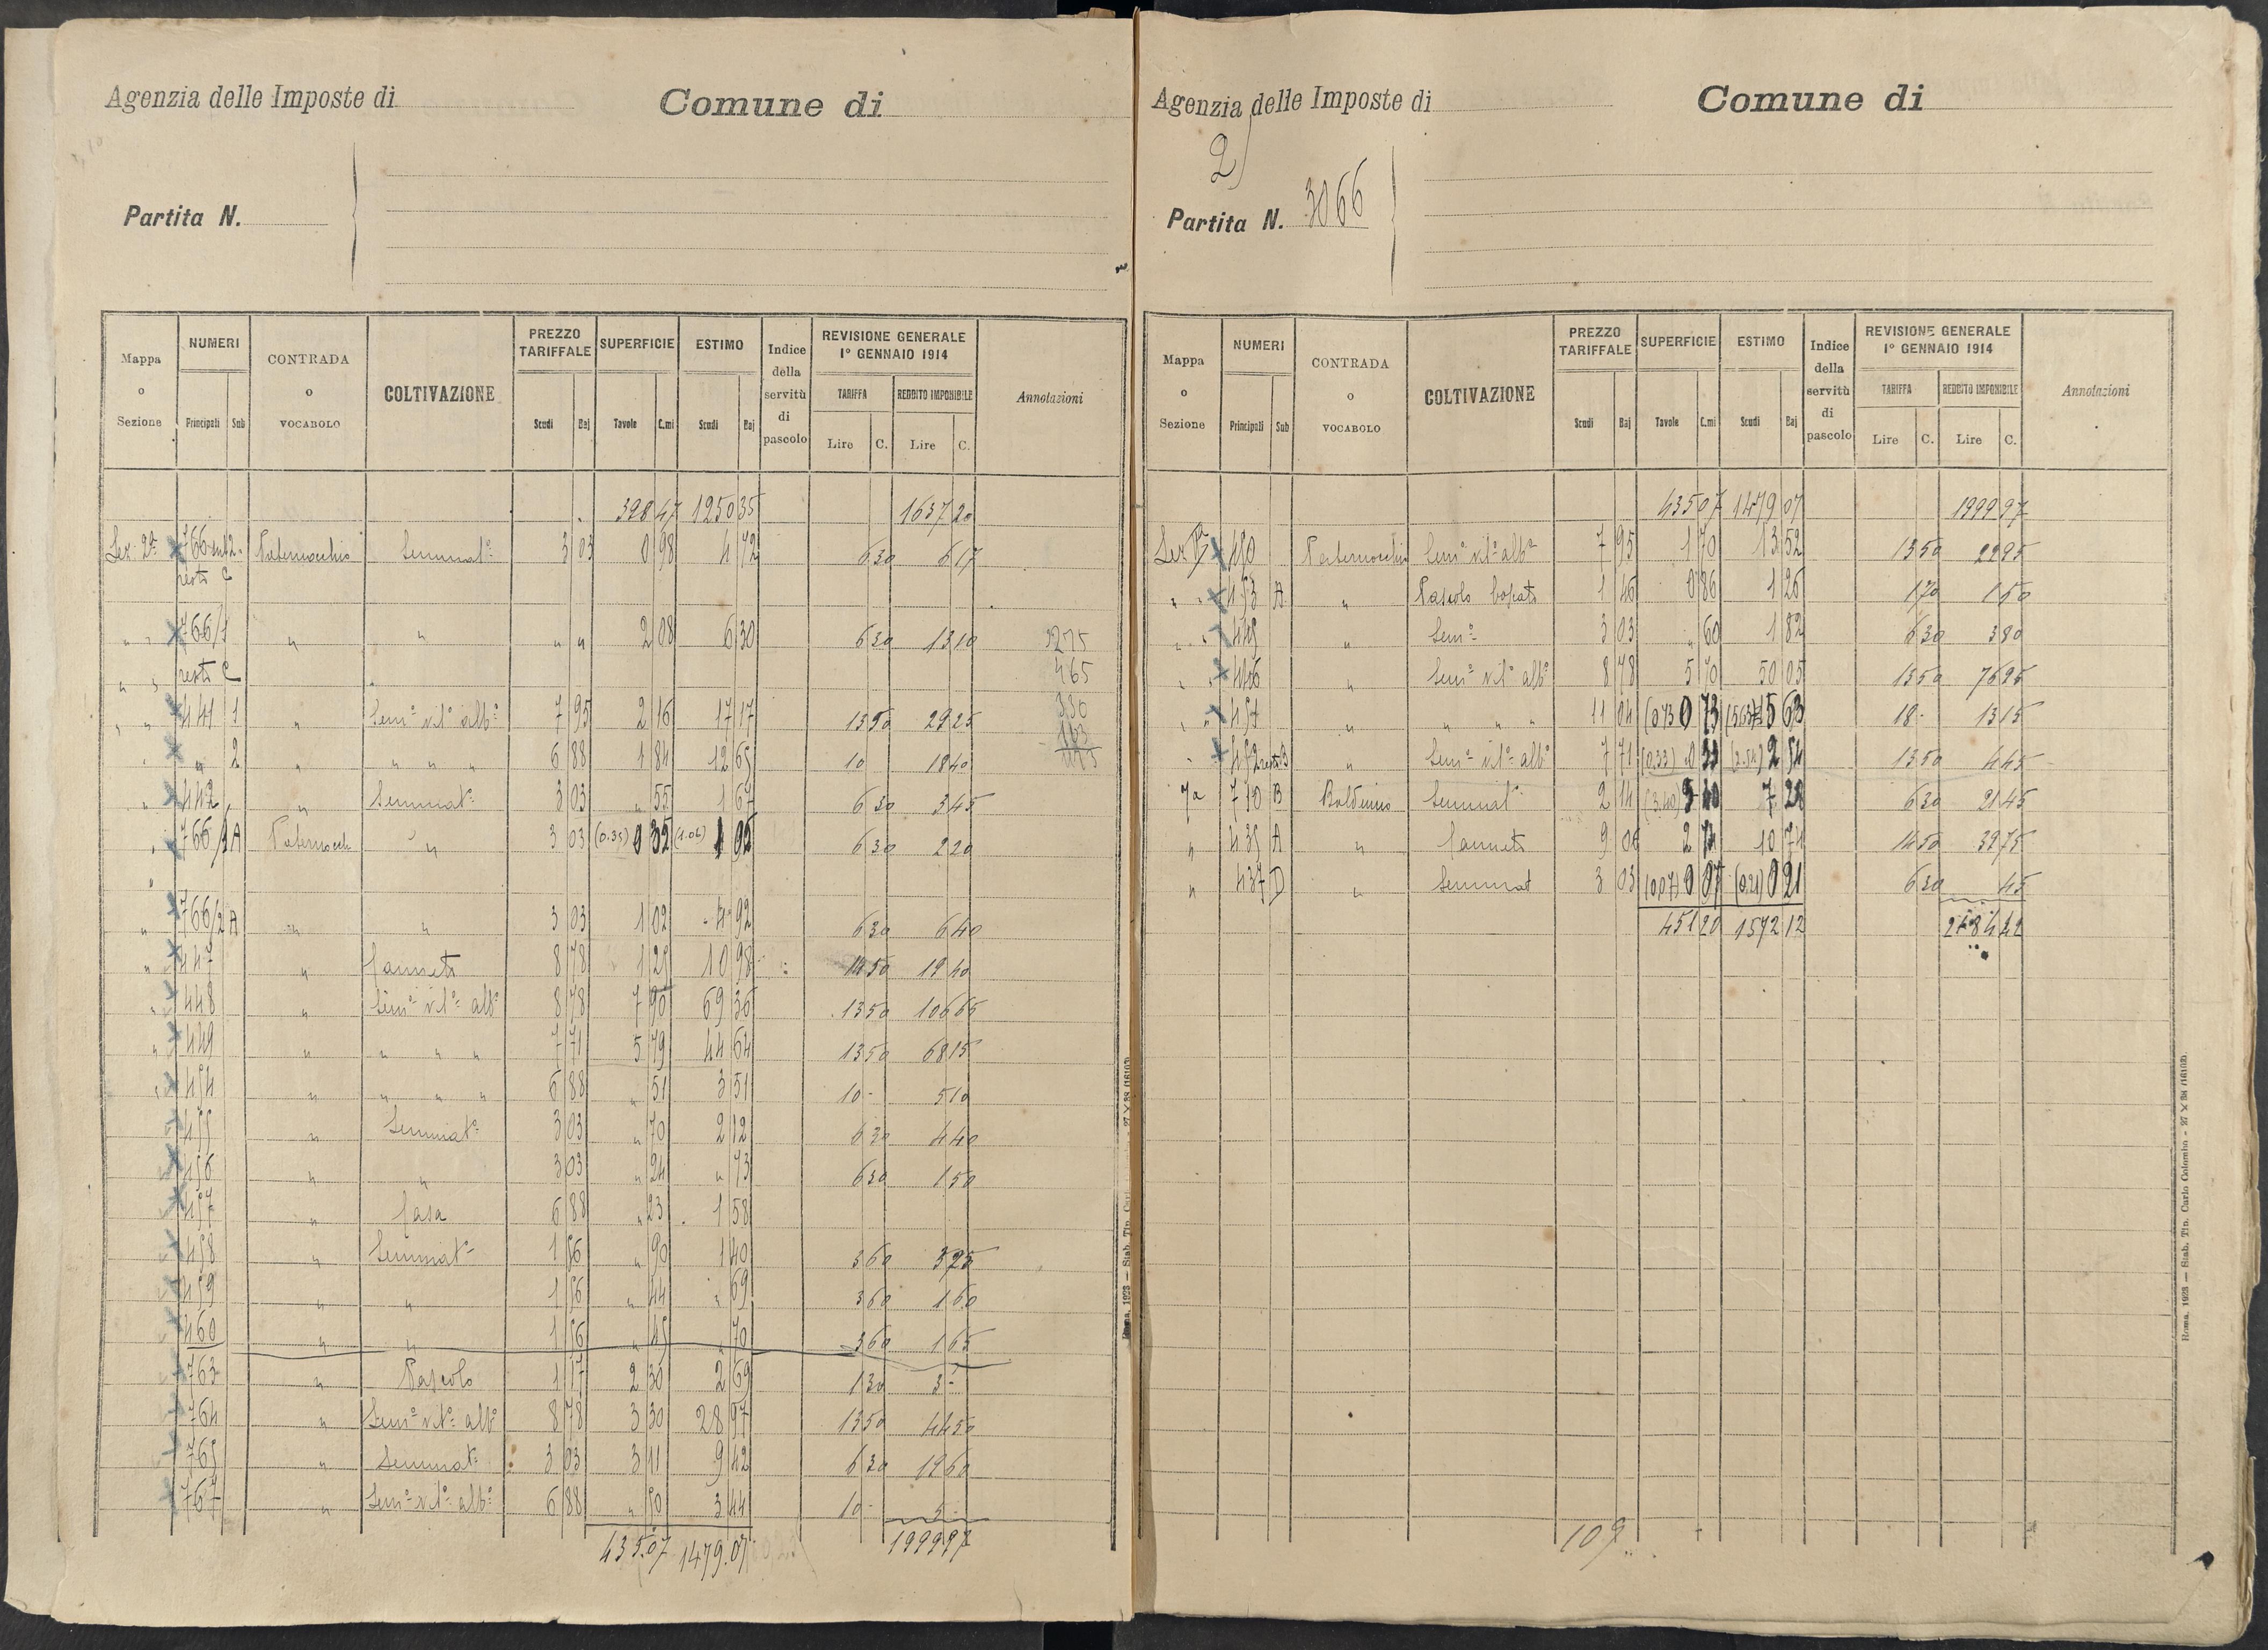 Agenzia delle Imposte di
Comune di
Partita N.
Mappa o Sezione | NUMERI Principali Sub | CONTRADA o VOCABOLO | COLTIVAZIONE | PREZZO TARIFFALE Scudi Baj | SUPERFICIE Tavole C.mi | ESTIMO Scudi Baj | Indice della servitù di pascolo | REVISIONE GENERALE 1° GENNAIO 1914 TARIFFA Lire C. REDDITO IMPONIBILE Lire C. | Annotazioni
398 47 1250 35 1637 20
Sez 2ª 766 sub 2 Paternocchio Seminat° 3 03 0 98 4 72 6 30 6 17
resto C
" " 766/1 " " " " 2 08 6 30 6 30 13 10 3275
" " resto C 465
" " 441 1 " Sem° vit° alb° 7 95 2 16 17 17 13 50 29 25 330
" " 2 " " " " 6 88 1 84 12 65 10 18 40
" 442 " Seminat° 3 03 " 55 1 67 6 30 3 45
" 766/1 A Paternocch " 3 03 (0.35) 0 35 (1.06) 6 30 2 20
"
" 766/2 A " " 3 03 1 02 4 92 6 30 6 40
" 447 " Canneto 8 78 1 25 10 98 19 40
" 448 " Sem° vit° alb° 8 78 7 90 69 36 13 50 106 65
" 449 " " " " 7 71 5 79 44 64 13 50 68 15
" 454 " " " " 6 88 " 51 3 51 10 - 5 10
455 " Seminat° 3 03 " 70 2 12 6 30 4 40
456 " " 3 03 " 24 " 73 6 30 1 50
457 " Casa 6 88 " 23 1 58
458 " Seminat° 1 56 " 90 1 40 3 60 3 25
459 " " 1 56 " 44 " 69 3 60 1 60
460 " " 1 56 " 45 " 70 3 60 1 65
763 " Pascolo 1 17 2 30 2 69 1 30 3 -
764 " Sem° vit° alb° 8 78 3 30 28 97 13 50 44 50
765 " Seminat° 3 03 3 11 9 42 6 30 19 60
767 " Sem° vit° alb° 6 88 " 50 3 44 10 - 5 -
435.07 1479.07 1999 97
Roma, 1923 — Stab. Tip.
Agenzia delle Imposte di
Comune di
2)
Partita N. 3066
Mappa o Sezione | NUMERI Principali Sub | CONTRADA o VOCABOLO | COLTIVAZIONE | PREZZO TARIFFALE Scudi Baj | SUPERFICIE Tavole C.mi | ESTIMO Scudi Baj | Indice della servitù di pascolo | REVISIONE GENERALE 1° GENNAIO 1914 TARIFFA Lire C. REDDITO IMPONIBILE Lire C. | Annotazioni
435 07 1479 07 1999 97
Sez 450 Paternocchio Sem° vit° alb° 7 95 1 70 13 52 13 50 22 95
" " 453 A " Pascolo boscato 1 46 0 86 1 26 1 70 1 50
" " 445 " Sem° 3 03 " 60 1 82 6 30 3 80
" " 446 " Sem° vit° alb° 8 78 5 70 50 05 13 50 76 95
" " " " " " 11 04 0 73 5 63 18 - 13 15
" 452 resto B " Sem° vit° alb° 7 71 (0.33) 0 33 (2.54) 2 54 13 50 4 45
7a 710 B Seminat° 2 14 (3.40) 3 40 7 28 6 30 21 45
" 435 A " Canneto 9 06 10 74 14 50 39 75
" 437 D " Seminat 3 03 (0.07) 0 07 (0.21) 0 21 6 30 45
451 20 1572 12 2184 42
109
Roma, 1923 — Stab. Tip. Carlo Colombo - 27 X 38 (16103)